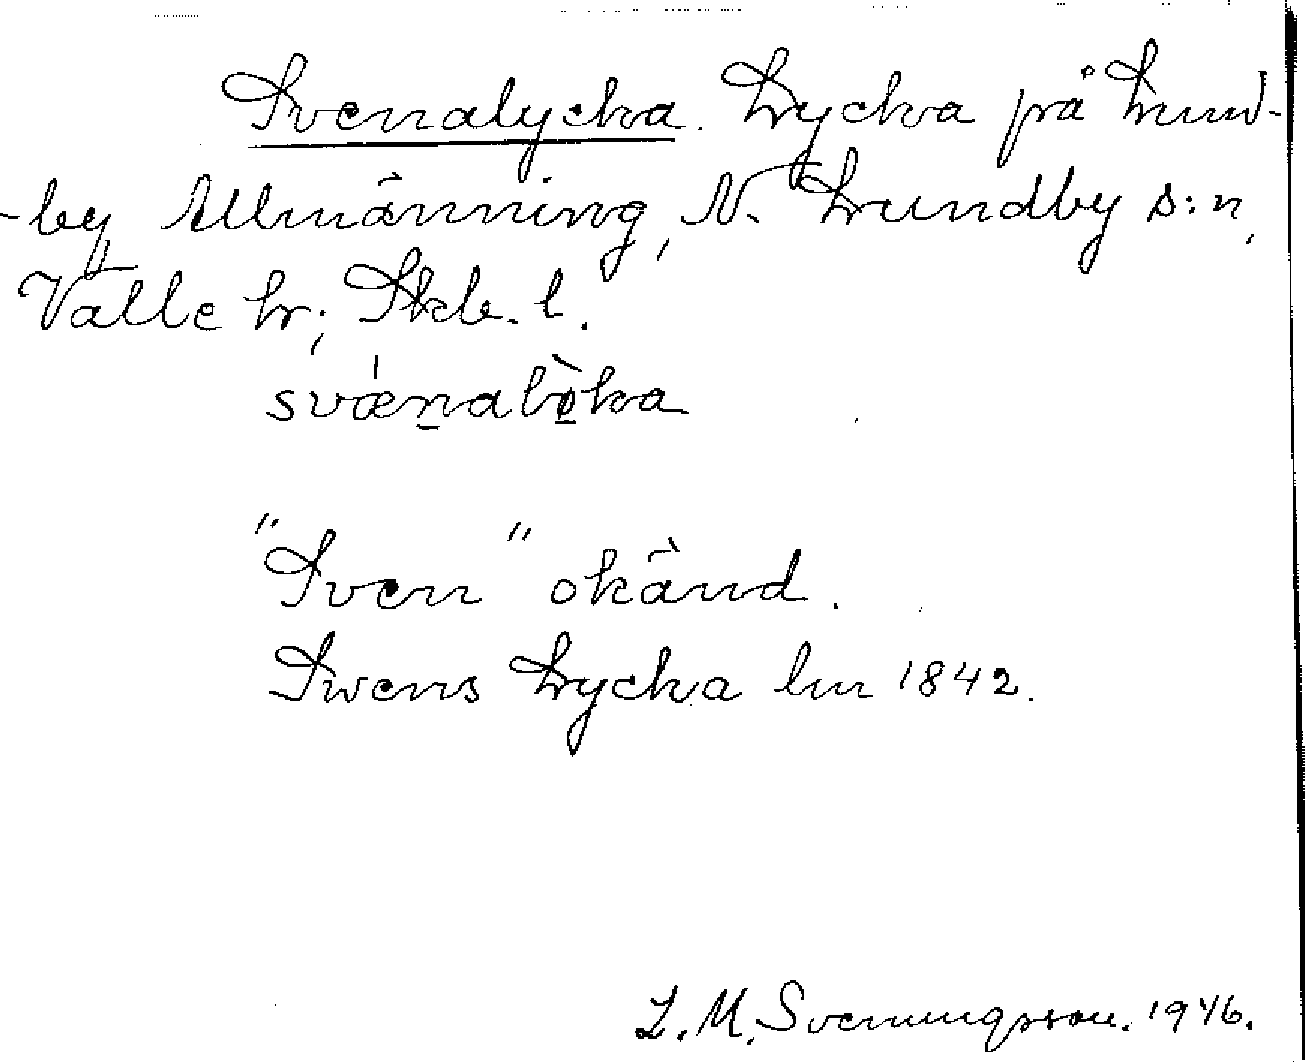 Svenalycka. Lycka på Lund-
-by Allmänning, N. Lundby s:n,
Valle hr; Skb. l.
svænalöka
"Sven" okänd.
Swens Lycka lm 1842.
L. M. Svenungsson. 1946.